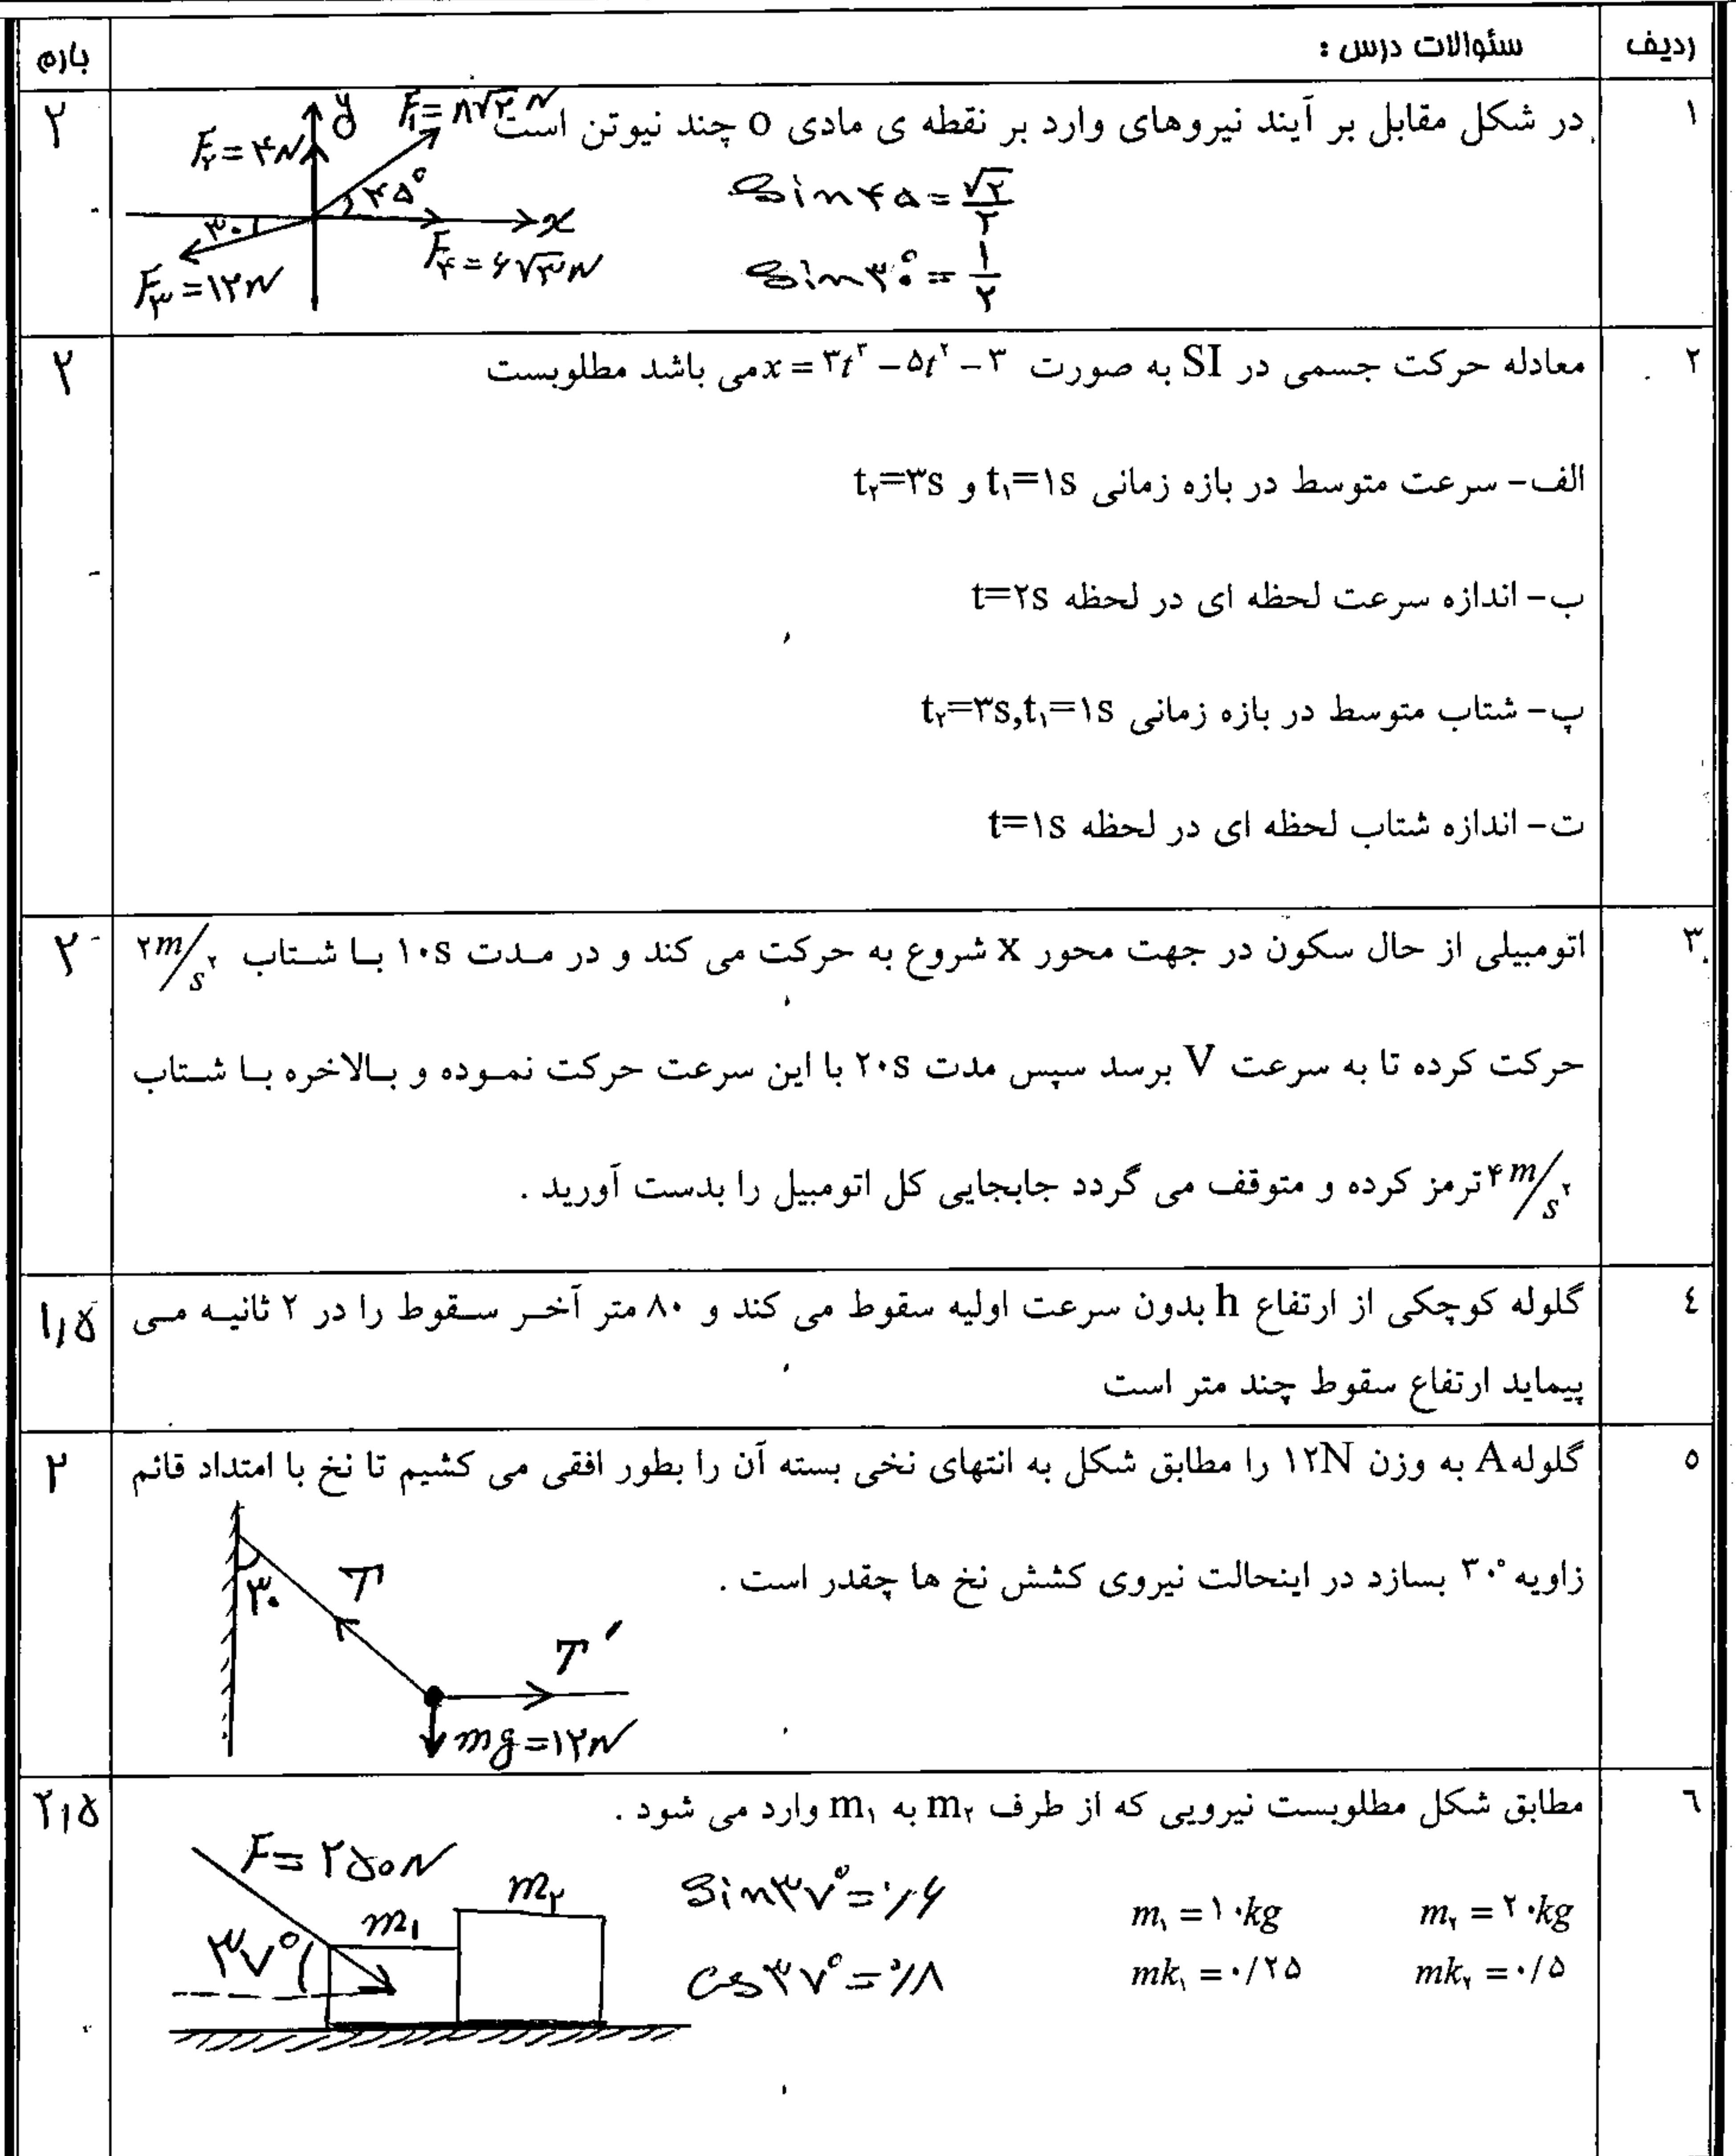 ردیف
سئوالات درس :
بارم
۱
در شکل مقابل بر آیند نیروهای وارد بر نقطه ی مادی o چند نیوتن است
۲
y
F₁=۸√۲ N
F₂=۴N
۴۵°
x
۳۰
F₃=۱۲N
F₄=۶√۳N
Sin۴۵=√۲/۲
Sin۳۰°=۱/۲
۲
معادله حرکت جسمی در SI به صورت x = ۳t³ − ۵t² − ۳ می باشد مطلوبست
۲
الف- سرعت متوسط در بازه زمانی t₁=۱s و t₂=۳s
ب- اندازه سرعت لحظه ای در لحظه t=۲s
پ- شتاب متوسط در بازه زمانی t₂=۳s,t₁=۱s
ت- اندازه شتاب لحظه ای در لحظه t=۱s
۳
اتومبیلی از حال سکون در جهت محور x شروع به حرکت می کند و در مدت ۱۰s با شتاب ۲m/s²
۲
حرکت کرده تا به سرعت V برسد سپس مدت ۲۰s با این سرعت حرکت نموده و بالاخره با شتاب
۴m/s² ترمز کرده و متوقف می گردد جابجایی کل اتومبیل را بدست آورید .
٤
گلوله کوچکی از ارتفاع h بدون سرعت اولیه سقوط می کند و ۸۰ متر آخر سقوط را در ۲ ثانیه می
۱,۵
پیماید ارتفاع سقوط چند متر است
٥
گلوله A به وزن ۱۲N را مطابق شکل به انتهای نخی بسته آن را بطور افقی می کشیم تا نخ با امتداد قائم
۲
زاویه ۳۰° بسازد در اینحالت نیروی کشش نخ ها چقدر است .
۳۰
T
T'
mg=۱۲N
٦
مطابق شکل مطلوبست نیرویی که از طرف m₂ به m₁ وارد می شود .
۲,۵
F=۲۵۰N
۳۷°
m₁
m₂
Sin۳۷°=۰/۶
Cos۳۷°=۰/۸
m₁ = ۱۰kg
m₂ = ۲۰kg
mk₁ = ۰/۲۵
mk₂ = ۰/۵